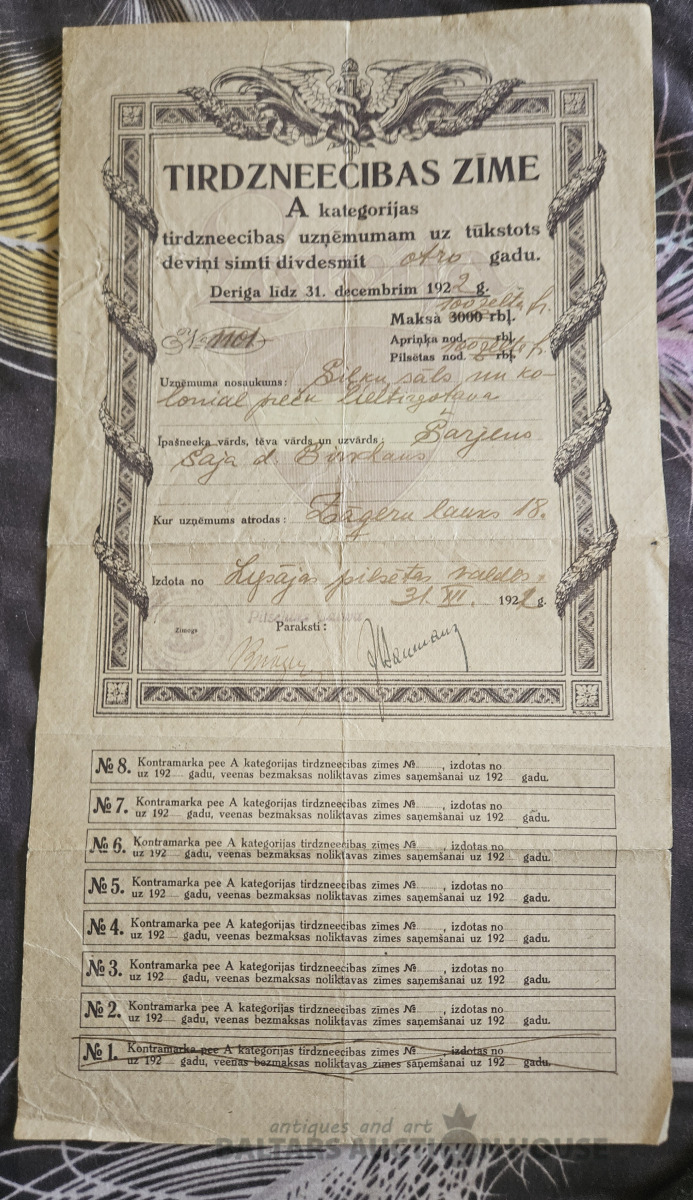 TIRDZNEECIBAS ZĪME
A kategorijas
tirdzneecibas uzņēmumam uz tūkstots
deviņi simti divdesmit otro gadu.
Deriga līdz 31. decembrim 1922 g.
100 zelta fr.
Maksā 3000 rbļ.
№ 1101
Apriņķa nod. rbļ.
Pilsētas nod. rbļ.
Uzņēmuma nosaukums: Siļķu, sāls un ko-
lonial preču lieltirgotava
Īpašneeka vārds, tēva vārds un uzvārds
Kur uzņēmums atrodas: lauks 18.
Izdota no pilsētas valdes
31. XII. 1921 g.
Zimogs
Paraksti:
№ 8. Kontramarka pee A kategorijas tirdzneecibas zīmes №, izdotas no
uz 192 gadu, veenas bezmaksas noliktavas zimes saņemšanai uz 192 gadu.
№ 7. Kontramarka pee A kategorijas tirdzneecibas zīmes №, izdotas no
uz 192 gadu, veenas bezmaksas noliktavas zimes saņemšanai uz 192 gadu.
№ 6. Kontramarka pee A kategorijas tirdzneecibas zīmes №, izdotas no
uz 192 gadu, veenas bezmaksas noliktavas zimes saņemšanai uz 192 gadu.
№ 5. Kontramarka pee A kategorijas tirdzneecibas zīmes №, izdotas no
uz 192 gadu, veenas bezmaksas noliktavas zimes saņemšanai uz 192 gadu.
№ 4. Kontramarka pee A kategorijas tirdzneecibas zīmes №, izdotas no
uz 192 gadu, veenas bezmaksas noliktavas zimes saņemšanai uz 192 gadu.
№ 3. Kontramarka pee A kategorijas tirdzneecibas zīmes №, izdotas no
uz 192 gadu, veenas bezmaksas noliktavas zimes saņemšanai uz 192 gadu.
№ 2. Kontramarka pee A kategorijas tirdzneecibas zīmes №, izdotas no
uz 192 gadu, veenas bezmaksas noliktavas zimes saņemšanai uz 192 gadu.
№ 1. Kontramarka pee A kategorijas tirdzneecibas zīmes №, izdotas no
uz 192 gadu, veenas bezmaksas noliktavas zimes saņemšanai uz 192 gadu.
antiques and art
BALTARS AUCTION HOUSE